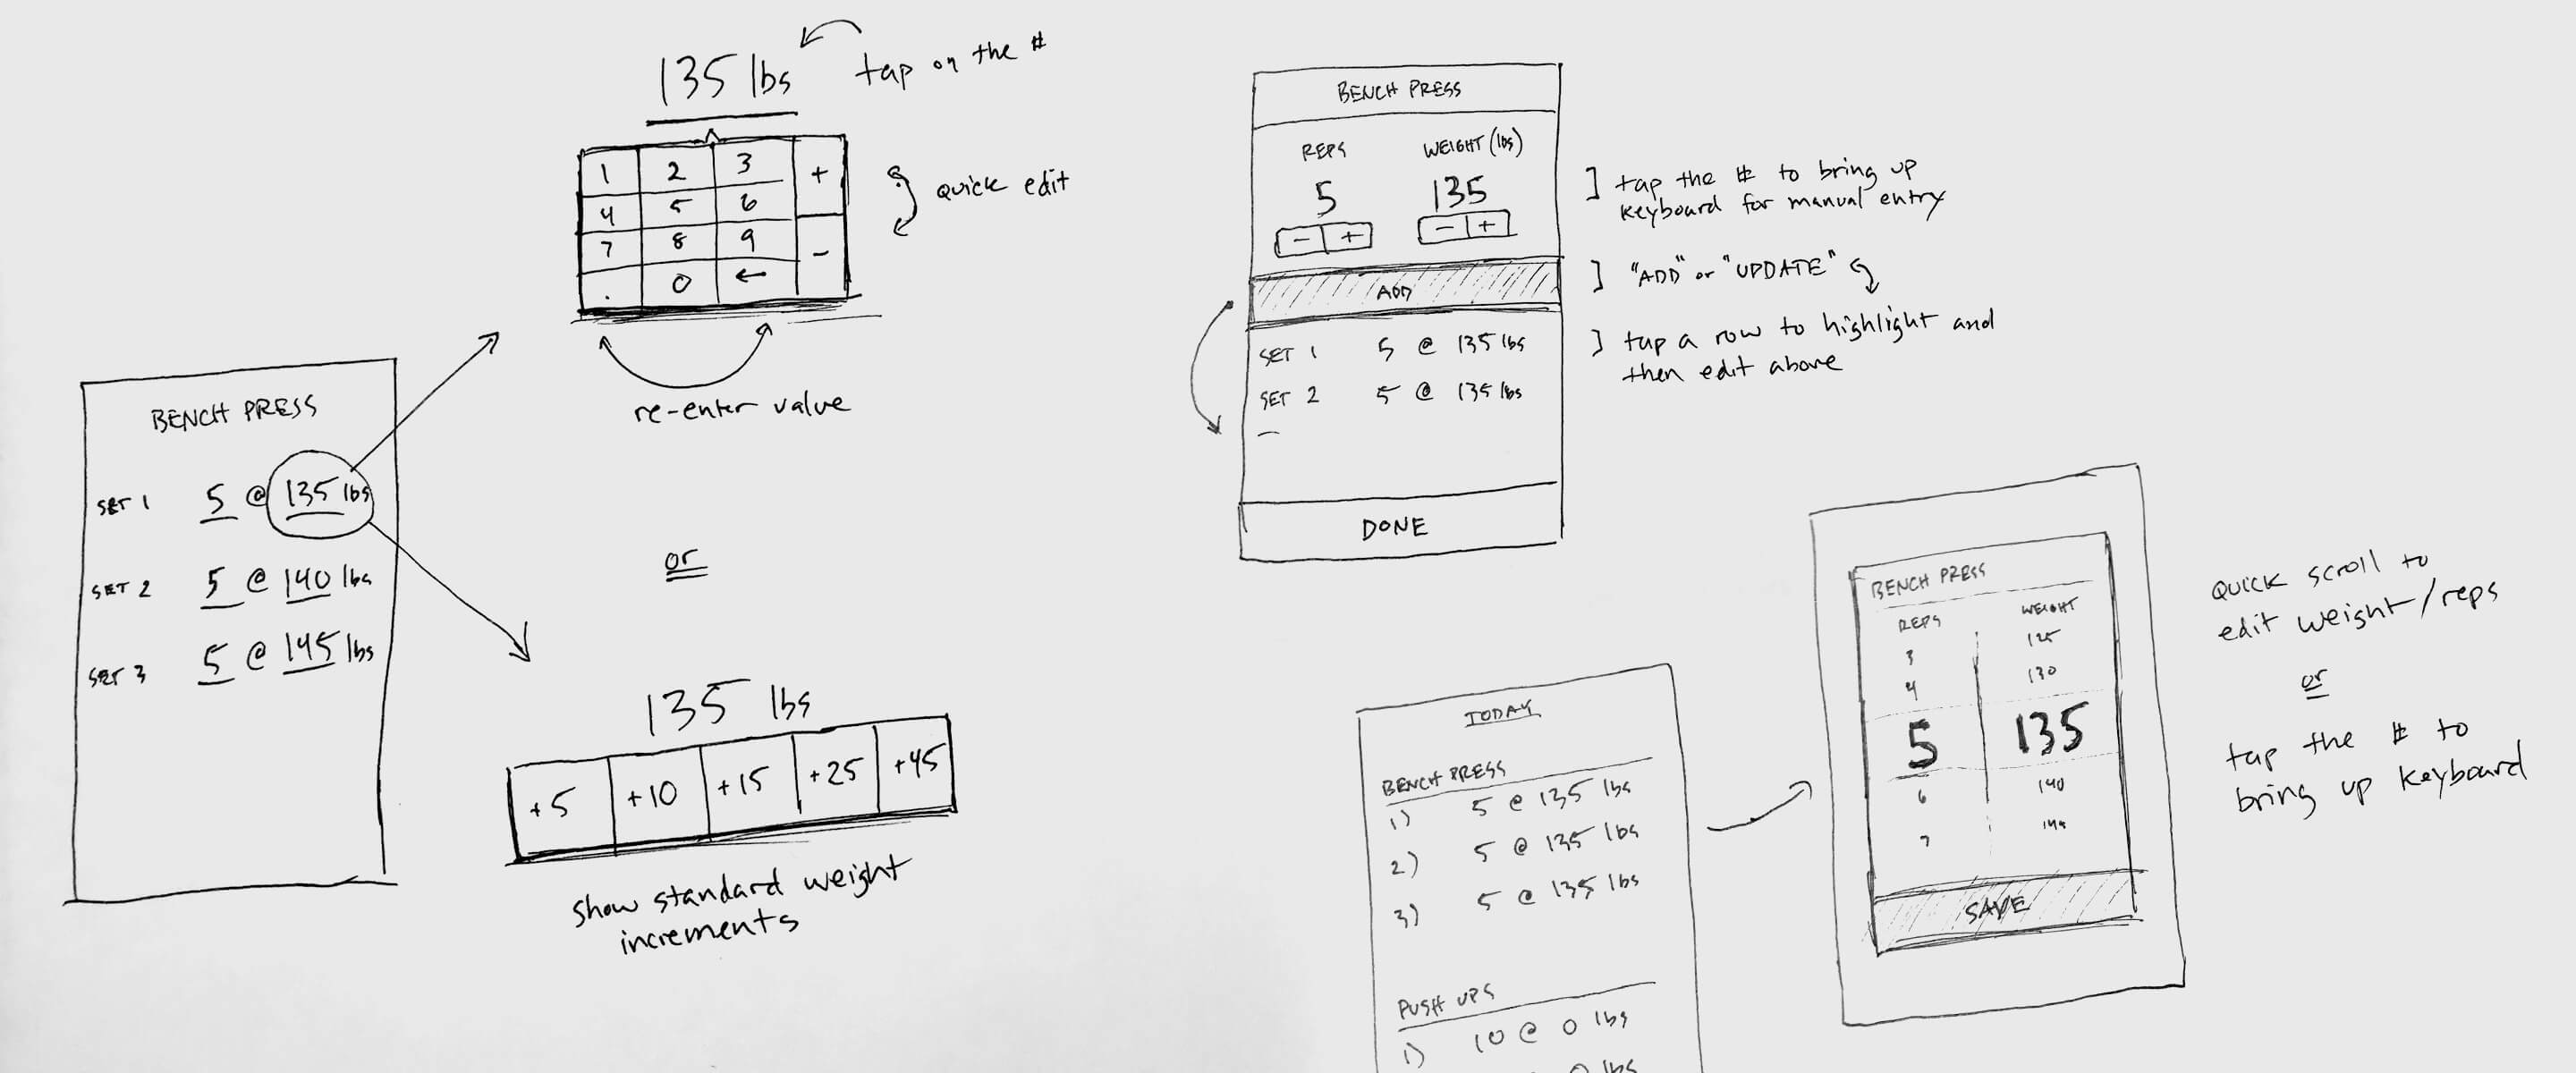 135 lbs
tap on the #
1 2 3 +
4 5 6
7 8 9 -
. 0 ←
quick edit
re-enter value
BENCH PRESS
SET 1 5 @ 135 lbs
SET 2 5 @ 140 lbs
SET 3 5 @ 145 lbs
or
135 lbs
+5 +10 +15 +25 +45
show standard weight
increments
BENCH PRESS
REPS WEIGHT (lbs)
5 135
- + - +
ADD
SET 1 5 @ 135 lbs
SET 2 5 @ 135 lbs
DONE
] tap the # to bring up
keyboard for manual entry
] "ADD" or "UPDATE"
] tap a row to highlight and
then edit above
TODAY
BENCH PRESS
1) 5 @ 135 lbs
2) 5 @ 135 lbs
3) 5 @ 135 lbs
PUSH UPS
1) 10 @ 0 lbs
0 lbs
BENCH PRESS
REPS WEIGHT
3 125
4 130
5 135
6 140
7 145
SAVE
quick scroll to
edit weight/reps
or
tap the # to
bring up keyboard